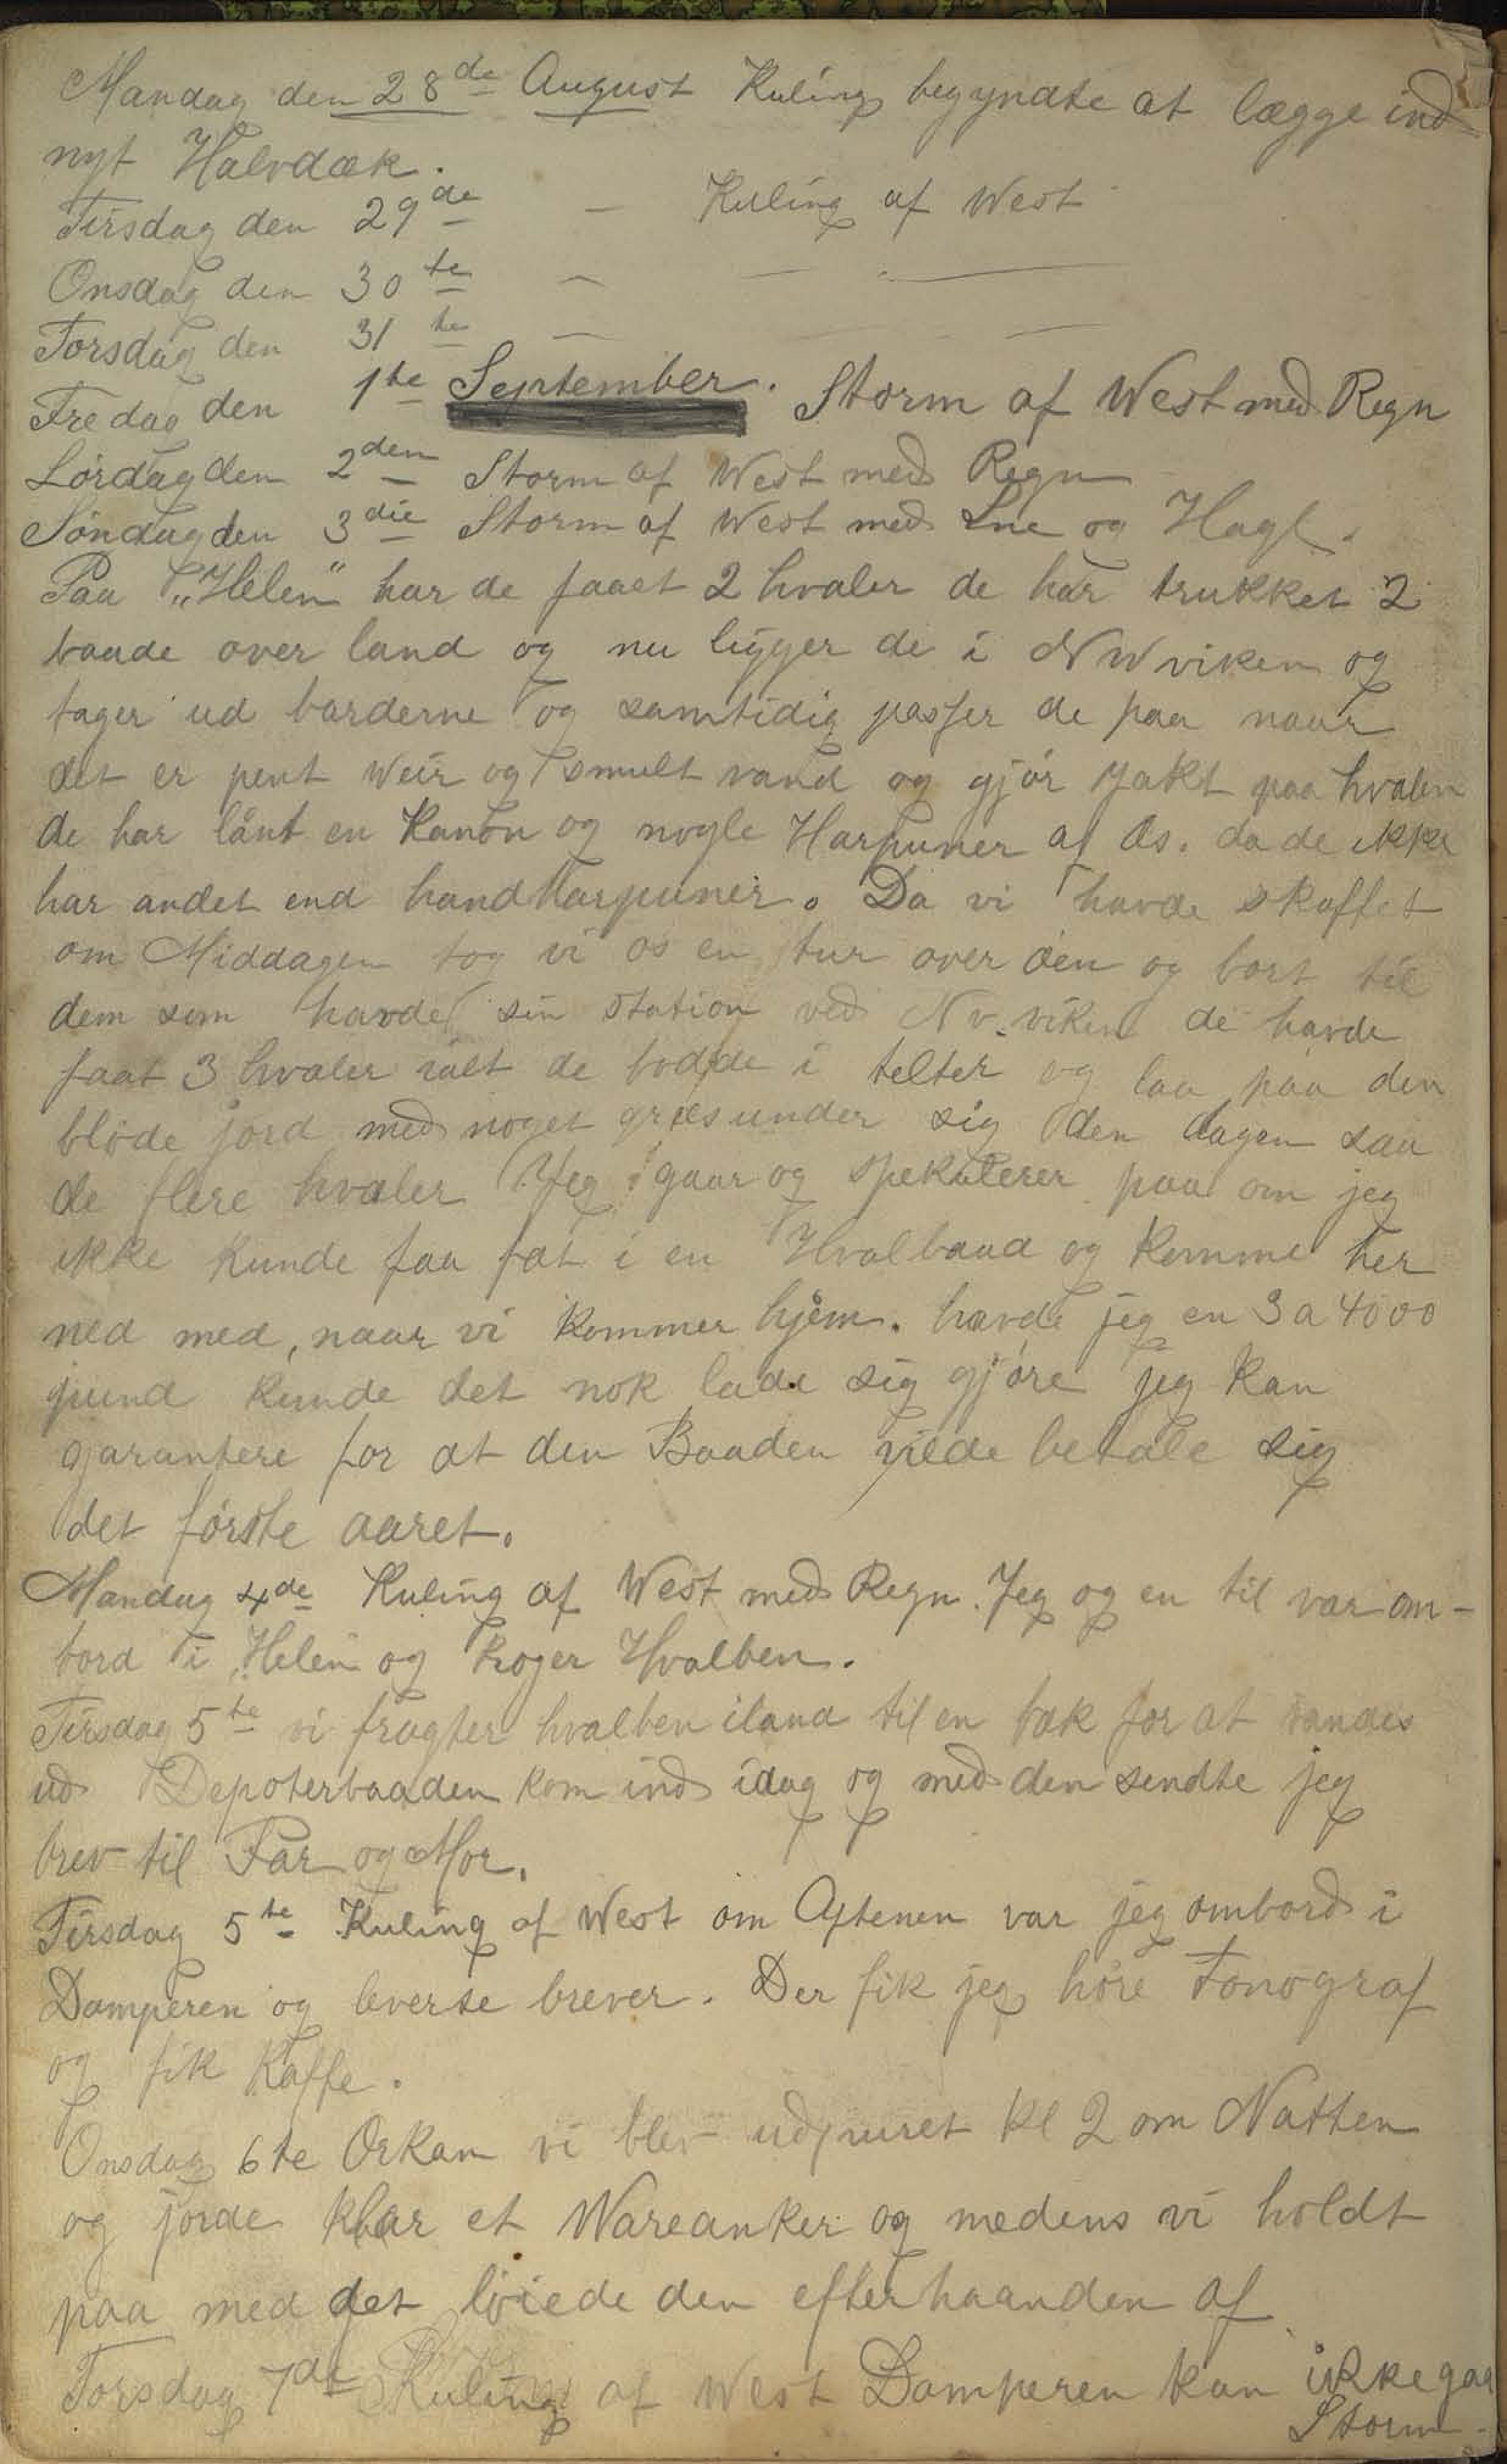 Mandag den 28de August Kuling begyndte at lægge ind
nyt Halvdæk.
Tirsdag den 29de — Kuling af West
Onsdag den 30te — — —
Torsdag den 31te — — —
Fredag den 1ste September. Storm af West med Regn
Lørdag den 2den Storm af West med Regn
Søndag den 3die Storm af West med Sne og Hagl.
Paa "Helen" har de faaet 2 hvaler de har trukket 2
baade over land og nu ligger de i NWviken og
tager ud barderne og samtidig passer de paa naar
det er pent Weir og smult vand og gjør Jakt paa hvalen
de har lånt en Kanon og nogle Harpuner af Os. da de ikke
har andet end handHarpuner. Da vi havde skaffet
om Middagen tog vi os en tur over øen og bort til
dem som havde sin station ved Nv.viken de havde
faat 3 hvaler ialt de bodde i telter og laa paa den
bløde jord med noget græs under sig den dagen saa
de flere hvaler Jeg gaar og spekulerer paa om jeg
ikke kunde faa fat i en Hvalbaad og komme her
ned med, naar vi kommer hjem. havde jeg en 3 a 4000
pund kunde det nok lade sig gjøre jeg kan
garantere for at den Baaden vilde betale sig
det første aaret.
Mandag 4de Kuling af West med Regn. Jeg og en til var om-
bord i "Helen og Koger Hvalben.
Tirsdag 5te vi fragter hvalben iland til en bæk for at vandes
ud Depoterbaaden kom ind idag og med den sendte jeg
brev til Far og Mor.
Tirsdag 5te Kuling af West om Aftenen var jeg ombord i
Damperen og leverte brever. Der fik jeg høre Fonograf
og fik Kaffe.
Onsdag 6te Orkan vi blev udpurret Kl 2 om Natten
og jorde klar et Wareanker og medens vi holdt
paa med det løiede den efterhaanden af
Torsdag 7de Kuling af West Damperen kan ikke gaa
Storm.